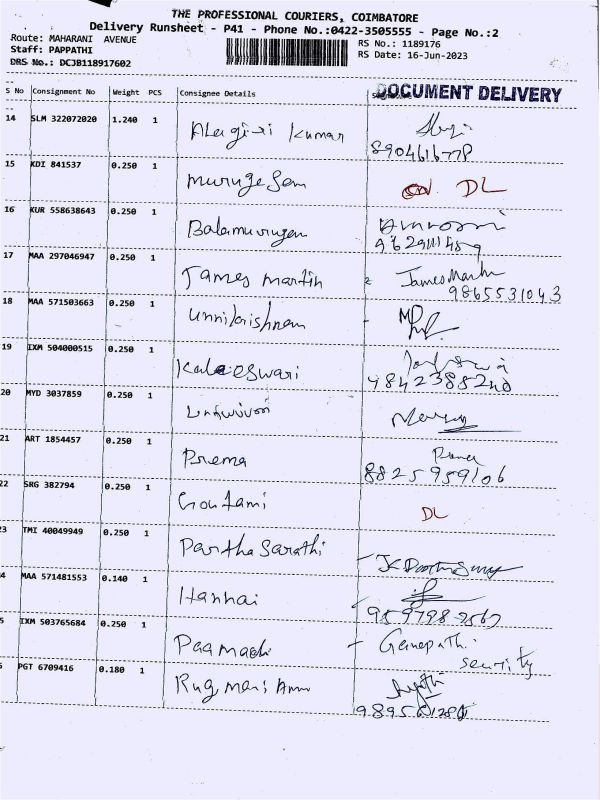 THE PROFESSIONAL COURIERS, COIMBATORE
Delivery Runsheet - P41 - Phone No.:0422-3505555 - Page No.:2
Route: MAHARANI AVENUE
RS No.: 1189176
Staff: PAPPATHI
RS Date: 16-Jun-2023
DRS No.: DCJB118917602
DOCUMENT DELIVERY
S No Consignment No Weight PCS Consignee Details
14 SLM 322072020 1.240 1 Alagiri Kumar
15 KDI 841537 0.250 1 Murugesan DL
16 KUR 558638643 0.250 1 Balamurugan
17 MAA 297046947 0.250 1 James martin James Martin
9865531043
18 MAA 571503663 0.250 1 Unnikrishnan
19 IXM 504000515 0.250 1 Kaleeswari
9842388240
20 MYD 3037859 0.250 1
21 ART 1854457 0.250 1 Prema
8825959106
22 SRG 382794 0.250 1 Goutami DL
3 TMI 40049949 0.250 1 Partha Sarathi
4 MAA 571481553 0.140 1 Hannai
5 IXM 503765684 0.250 1 Ganapathi
security
PGT 6709416 0.180 1